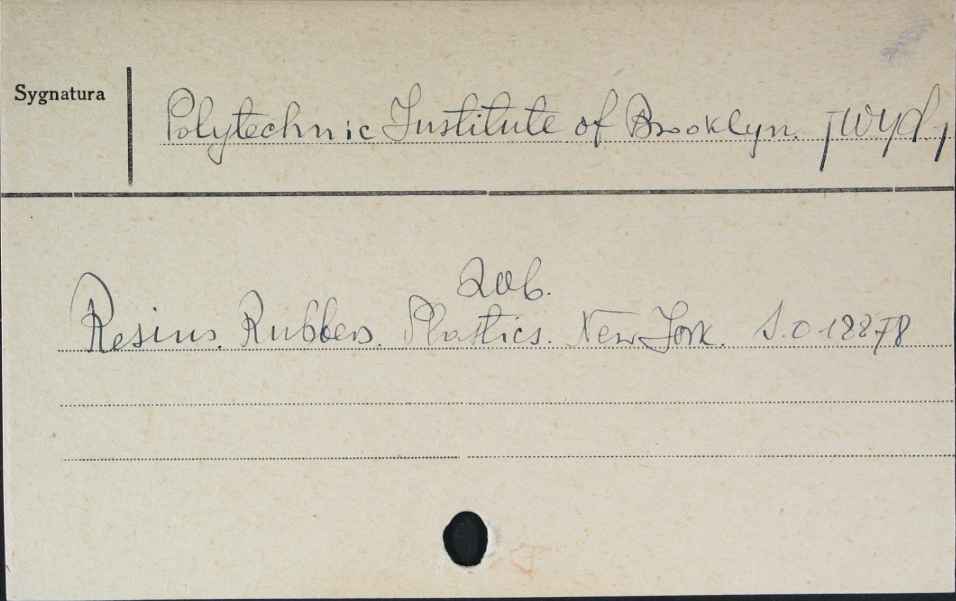 Sygnatura
Polytechnic Institute of Brooklyn. [Wyd]
Zob.
Resins. Rubbers. Plastics. New York. S.0 12278